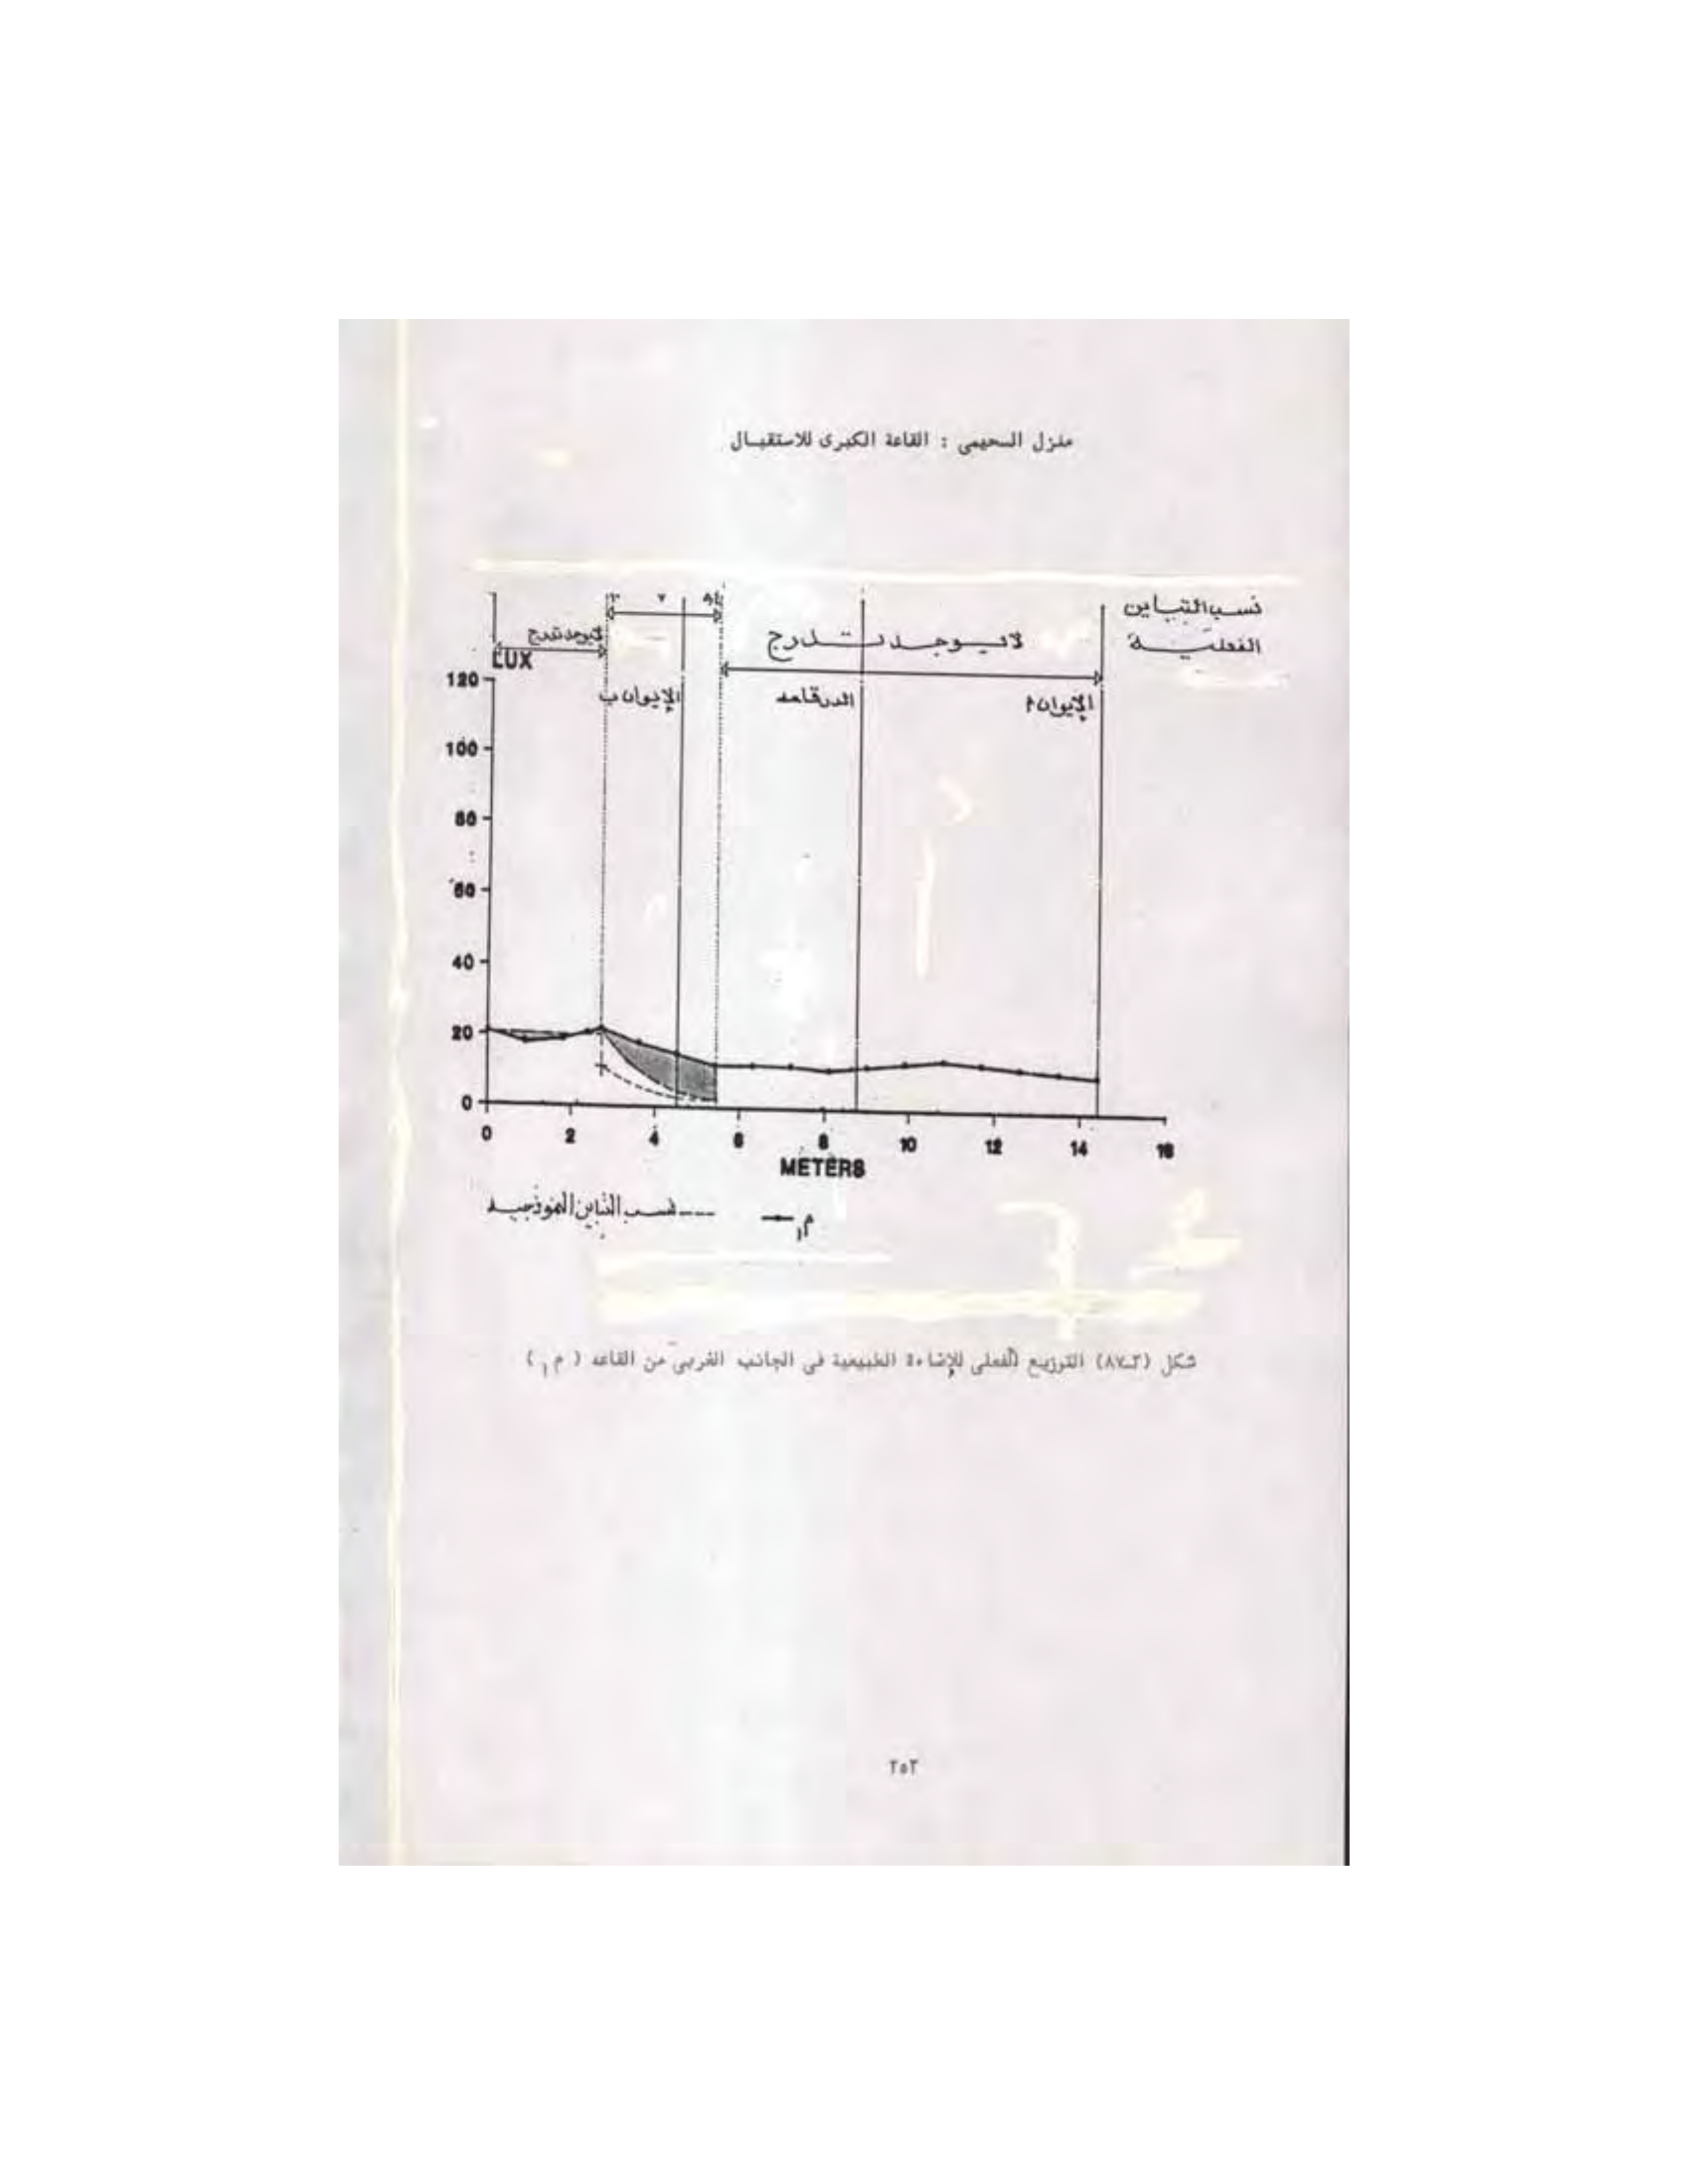 منزل السحيمى : القاعة الكبرى للاستقبال
نسب التباين
الفعلية
٣ ٧
لايوجد تدرج
لايوجد تدرج
LUX
الإيوان ب
الدرقاعه
الإيوان أ
120
100
80
60
40
20
0
0 2 4 6 8 10 12 14 16
METERS
نسب التباين النموذجيه
م١
شكل (٣-٨٧) التوزيع الفعلى للإضاءة الطبيعية فى الجانب الغربى من القاعه ( م١ )
٢٥٣